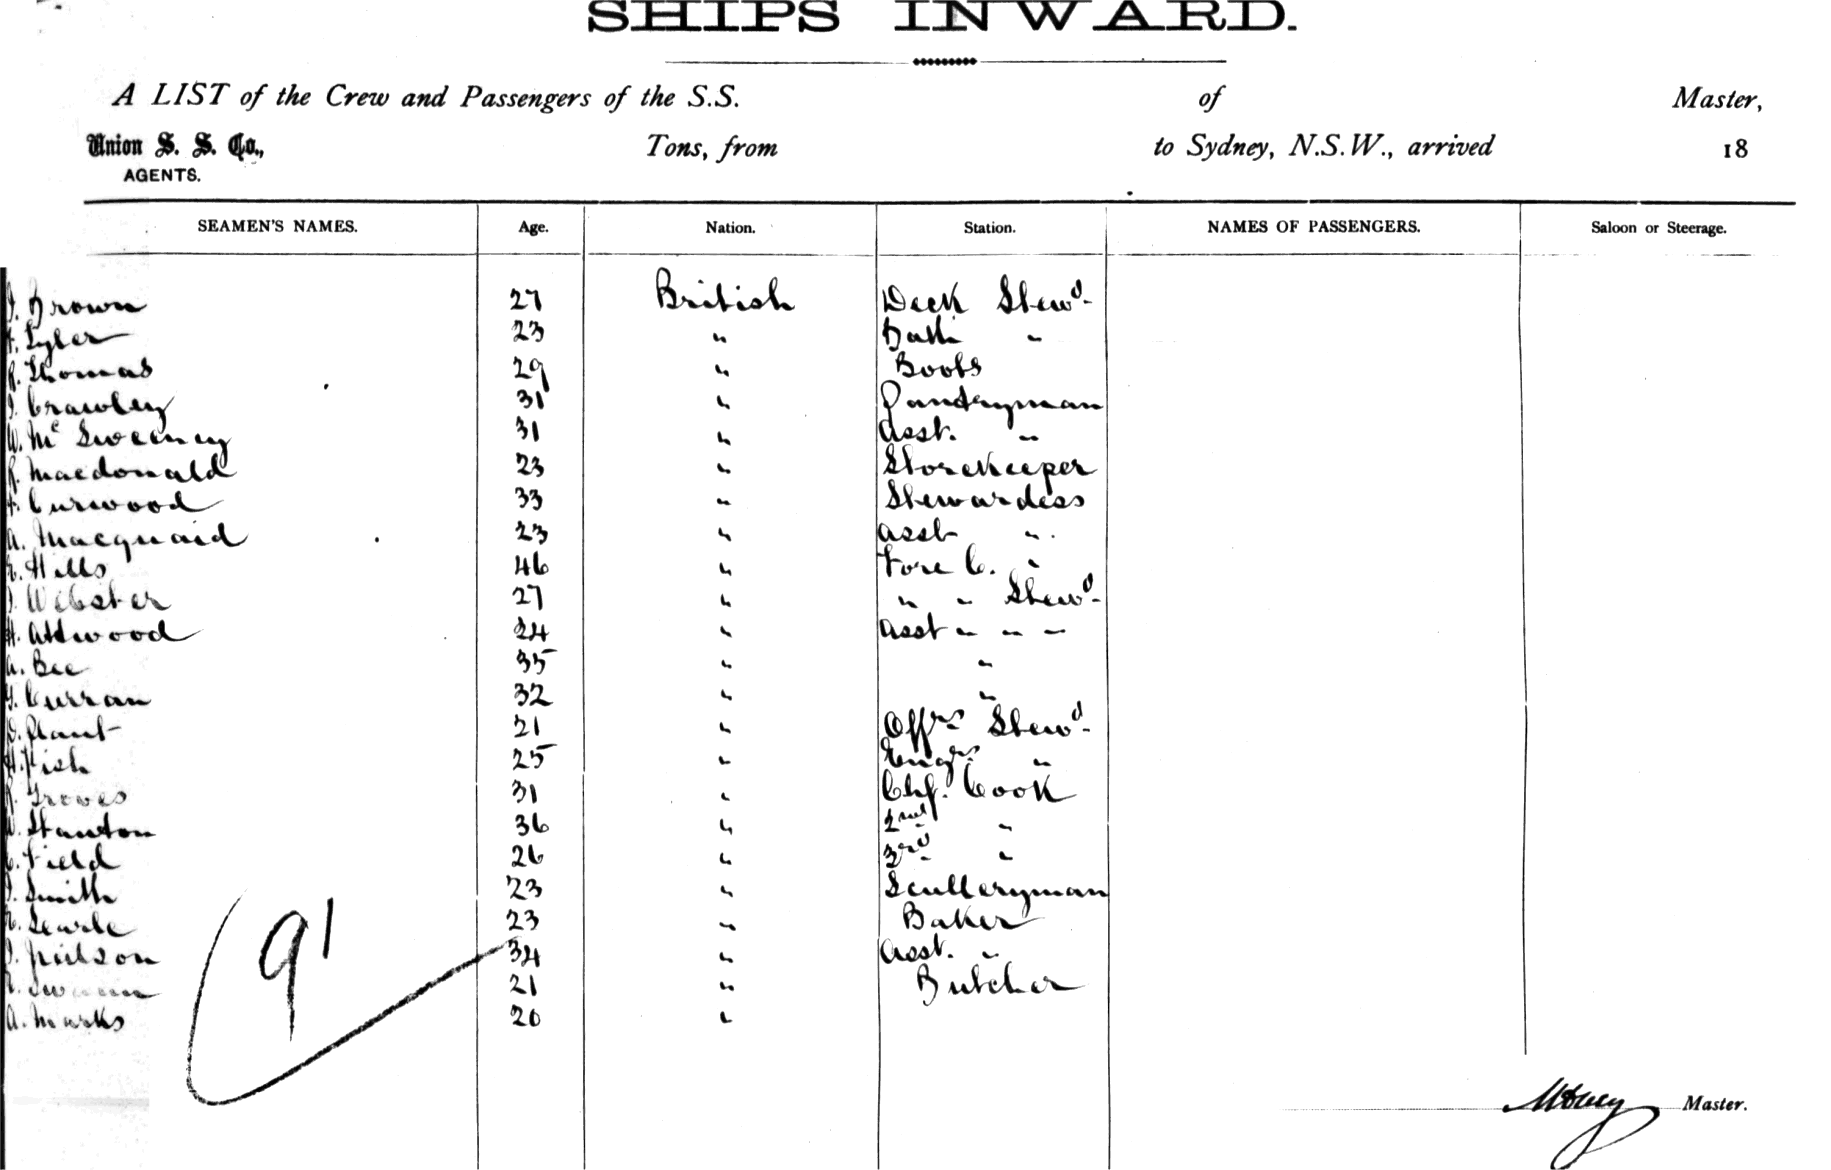 SHIPS INWARD.
A LIST of the Crew and Passengers of the S.S. of Master,
Union S. S. Co., Tons, from to Sydney, N.S.W., arrived 18
AGENTS.
SEAMEN'S NAMES. Age. Nation. Station. NAMES OF PASSENGERS. Saloon or Steerage.
J. Brown 27 British Deck Stewd-
F. Tyler 23 " Bath "
R. Thomas 29 " Boots
J. Crawley 31 " Pantryman
W. Mc Sweeney 31 " Asst. "
R. Macdonald 23 " Storekeeper
F. Curwood 33 " Stewardess
A. Macquaid 23 " Asst "
E. Hills 46 " Fore C. "
J. Webster 27 " " " Stewd-
H. Attwood 24 " Asst " " "
A. Bee 35 " "
Curran 32 " "
D. Plant 21 " Offrs Stewd-
H. Fish 25 " Engrs "
R. Groves 31 " Chf. Cook
W. Stanton 36 " 2nd "
Field 26 " 3rd "
J. Smith 23 " Sculleryman
Searle 23 " Baker
34 " Asst. "
Swain 21 " Butcher
A. Marks 26 "
91
Master.